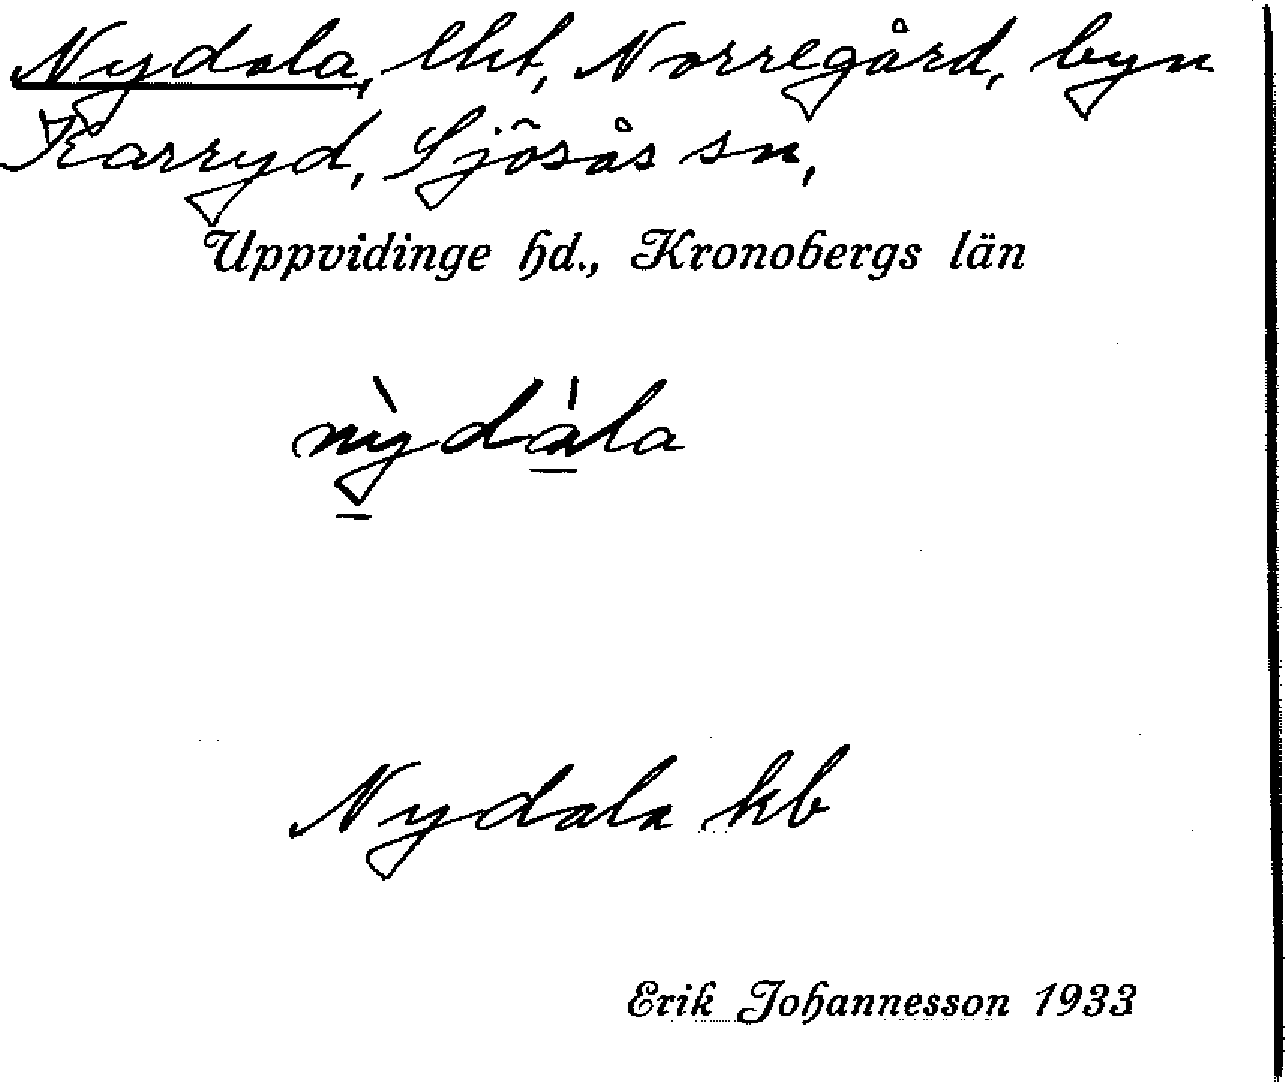 Nydala, lht, Norregård, byn
Karryd, Sjösås sn,
Uppvidinge hd., Kronobergs län
nỳdàla
Nydala kb
Erik Johannesson 1933